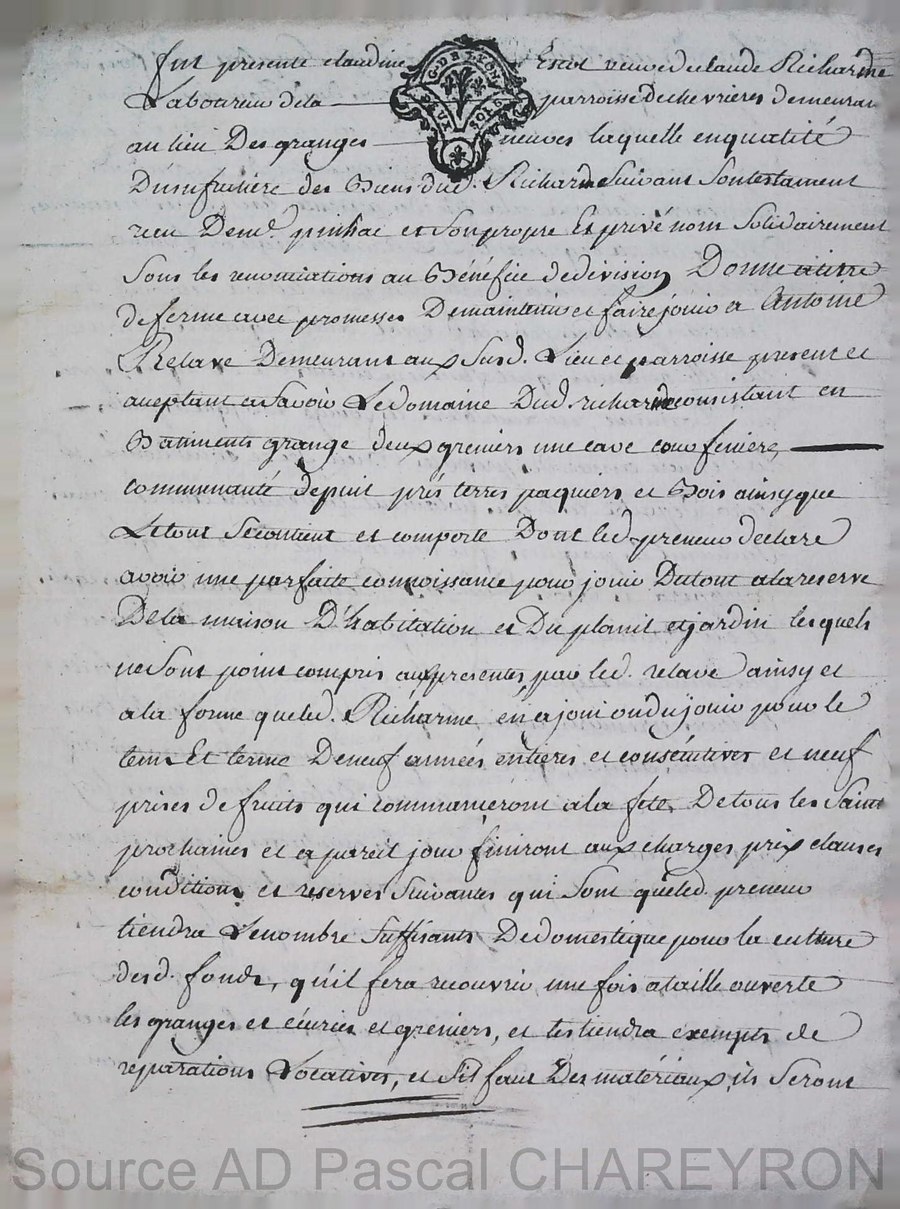 fut presente claudine Escot veuve de claude Richarme
Laboureur de la parroisse de chevrieres demeurant
G. DE LYON
DEUX SOLS
au lieu Des granges neuves laquelle en qualité
Dusufruitiere des Biens dud. Richarme Suivant Son testament
recu De me. pinhac et Son propre Et privé nom Solidairement
Sous les renonciations au Bénéfice de division, Donne a titre
de ferme avec promesses De maintenir et faire jouir a Antoine
Relave Demeurant aux Susd. Lieu et parroisse present et
aceptant a Savoir Le domaine Dud. richarme consistant en
Batiments grange deux greniers une cave cour feniere,
communauté de puit prés terres paquiers et Bois ainsy que
Le tout Se contient et comporte Dont led. preneur declare
avoir une parfaite connoissance pour jouir Du tout a la reserve
De la maison D'habitation et Du planit et jardin les quels
ne Sont point compris aux presentes, par led. relave d'ainsy et
a la forme que led. Richarme en a joui ou du jouir pour le
tems Et terme De neuf années entieres et consécutives et neuf
prises de fruits qui commanceront a la fete De tous les Saints
prochaines et a pareil jour finiront aux charges prix clauses
conditions et reserves Suivantes qui Sont que led. preneur
tiendra Le nombre Suffisants De domestique pour la culture
desd. fonds, qu'il fera recouvrir une fois a taille ouverte
les granges et écuries et greniers, et les tiendra exempts de
réparations Locatives, et S'il faut Des matériaux, ils Seront
Source AD Pascal CHAREYRON